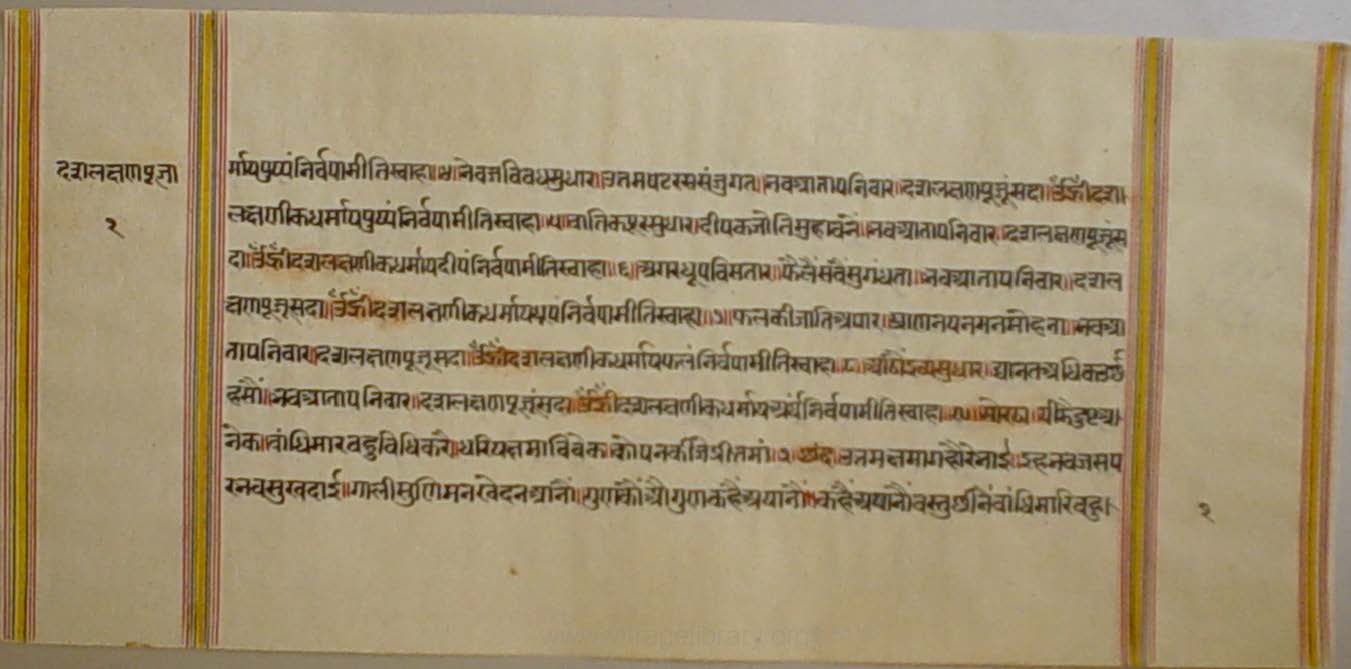 दशलक्षणपूजा
२
र्मायपुष्पंनिर्वपामीतिस्वाहा॥४॥नेवजविवधसुधार॥उतमषटरससंजुगत॥नवआतापनिवार॥दशलक्षणपूजूंसदा॥ॐह्रींदश।
लक्षणीकधर्मायपुष्पंनिर्वपामीतिस्वाहा॥५॥वातिकपूरसुधार॥दीपकजोतिसुहावनै॥नवआतापनिवार॥दशलक्षणपूजूंस
दा॥ॐह्रींदशलक्षणीकधर्मायदीपंनिर्वपामीतिस्वाहा॥६॥अगरधूपविसतार॥फैलैसवैसुगंधता॥नवआतापनिवार॥दशल
क्षणपूजूसदा॥ॐह्रींदशलक्षणीकधर्मायधूपंनिर्वपामीतिस्वाहा॥७॥फलकीजातिअपार॥घ्राणनयनमनमोहना॥नवआ
तापनिवार॥दशलक्षणपूजूसदा॥ॐह्रींदशलक्षणीकधर्मायफलंनिर्वपामीतिस्वाहा॥८॥आठौंद्रव्यसुधार॥द्यानतअधिकउछ
हसौं॥नवआतापनिवार॥दशलक्षणपूजूंसदा॥ॐह्रींदशलक्षणीकधर्मायअर्घंनिर्वपामीतिस्वाहा॥९॥सोरठा॥पीडैदुष्टअ।
नेक॥बांधिमारबहुविधिकरै॥धरियेक्षमाविवेक॥कोपनकीजेप्रीतमां॥१॥छंद॥उतमक्षमागहौरेभाई॥इहभवजसपर
रभवसुखदाई॥गालीसुणिमनखेदनआंनौ॥गुणकौंऔगुणकहैअयांनौ॥कहैअयानौवस्तुछीनैबांधिमारिबहु।
२